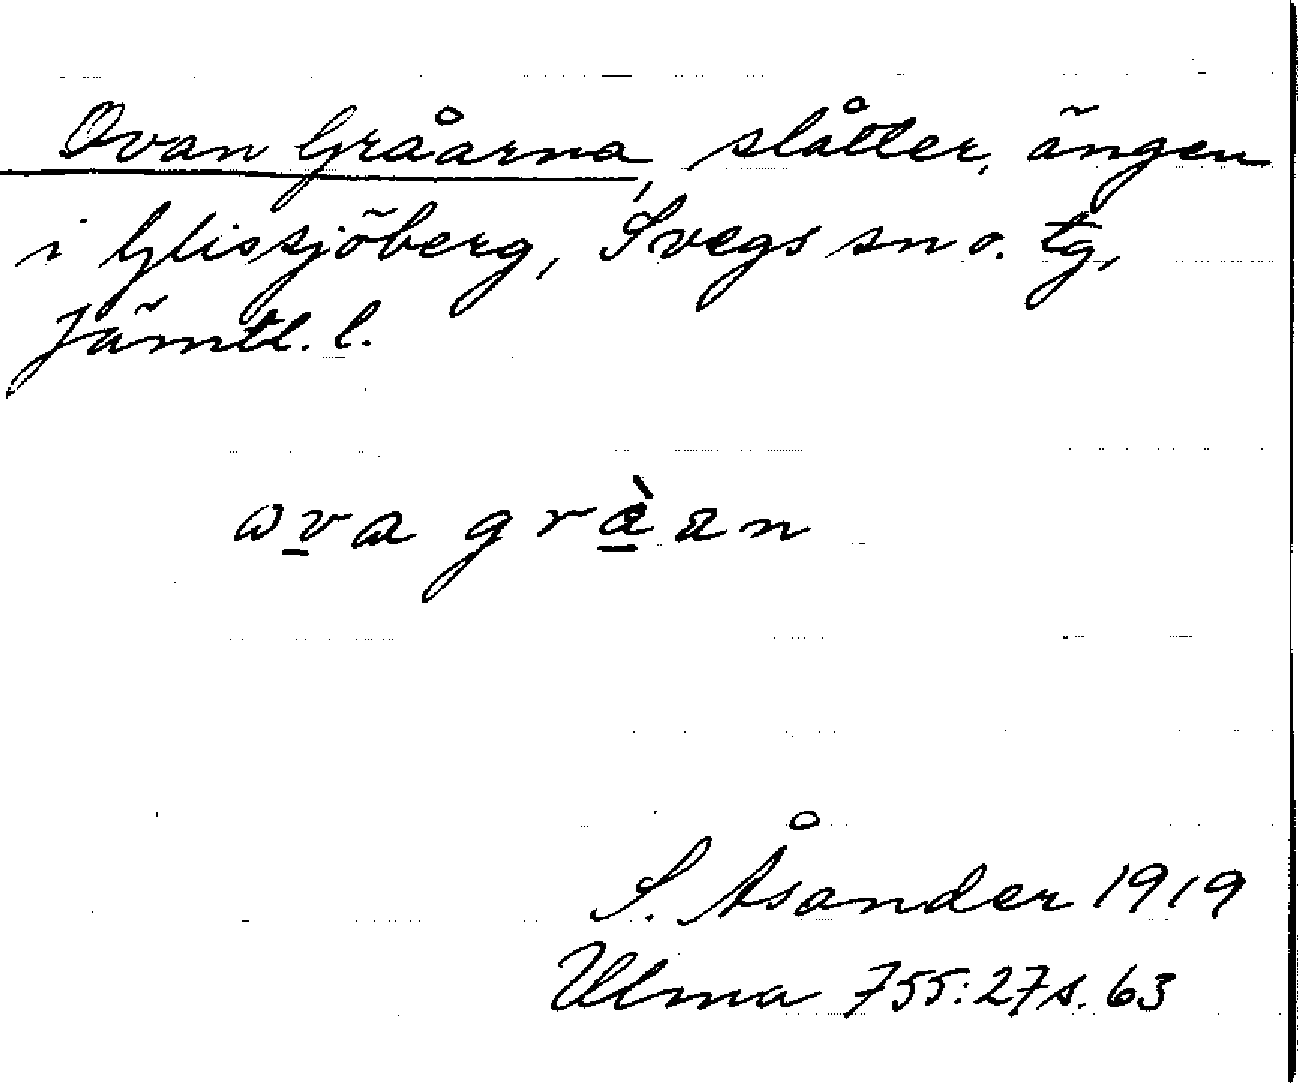 Ovan Gråarna, slåtter, ängen
i Glissjöberg, Svegs sn o. tg,
Jämtl. l.
ava gràan
S. Åsander 1919
Ulma 755:27 s. 63